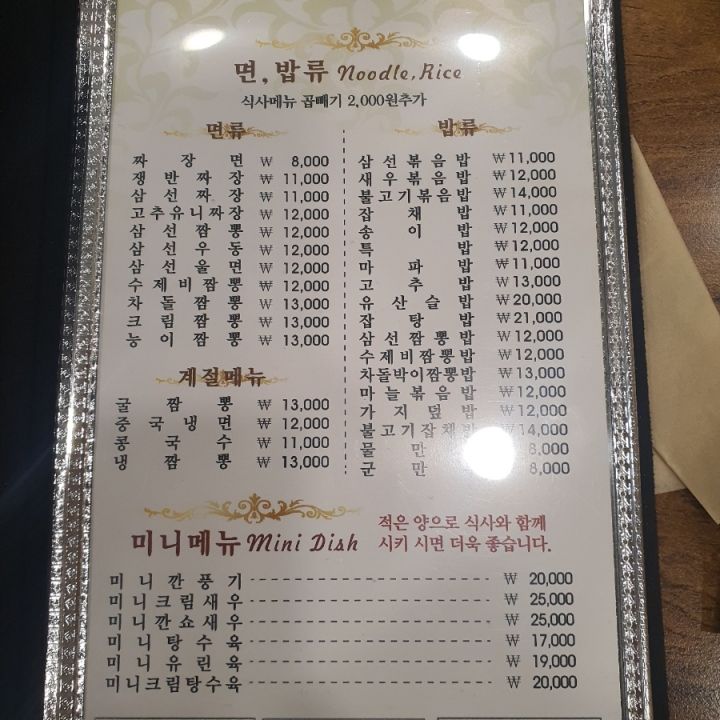 면, 밥류 Noodle, Rice
식사메뉴 곱빼기 2,000원추가
면류
짜장면 ₩ 8,000
쟁반짜장 ₩ 11,000
삼선짜장 ₩ 11,000
고추유니짜장 ₩ 12,000
삼선짬뽕 ₩ 12,000
삼선우동 ₩ 12,000
삼선울면 ₩ 12,000
수제비짬뽕 ₩ 12,000
차돌짬뽕 ₩ 13,000
크림짬뽕 ₩ 13,000
능이짬뽕 ₩ 13,000
계절메뉴
굴짬뽕 ₩ 13,000
중국냉면 ₩ 12,000
콩국수 ₩ 11,000
냉짬뽕 ₩ 13,000
밥류
삼선볶음밥 ₩11,000
새우볶음밥 ₩12,000
불고기볶음밥 ₩14,000
잡채밥 ₩11,000
송이밥 ₩12,000
특밥 ₩12,000
마파밥 ₩11,000
고추밥 ₩13,000
유산슬밥 ₩20,000
잡탕밥 ₩21,000
삼선짬뽕밥 ₩12,000
수제비짬뽕밥 ₩12,000
차돌박이짬뽕밥 ₩13,000
마늘볶음밥 ₩12,000
가지덮밥 ₩12,000
불고기잡채밥 14,000
물만 8,000
군만 8,000
미니메뉴 Mini Dish
적은 양으로 식사와 함께
시키 시면 더욱 좋습니다.
미니깐풍기 ₩ 20,000
미니크림새우 ₩ 25,000
미니깐쇼새우 ₩ 25,000
미니탕수육 ₩ 17,000
미니유린육 ₩ 19,000
미니크림탕수육 ₩ 20,000